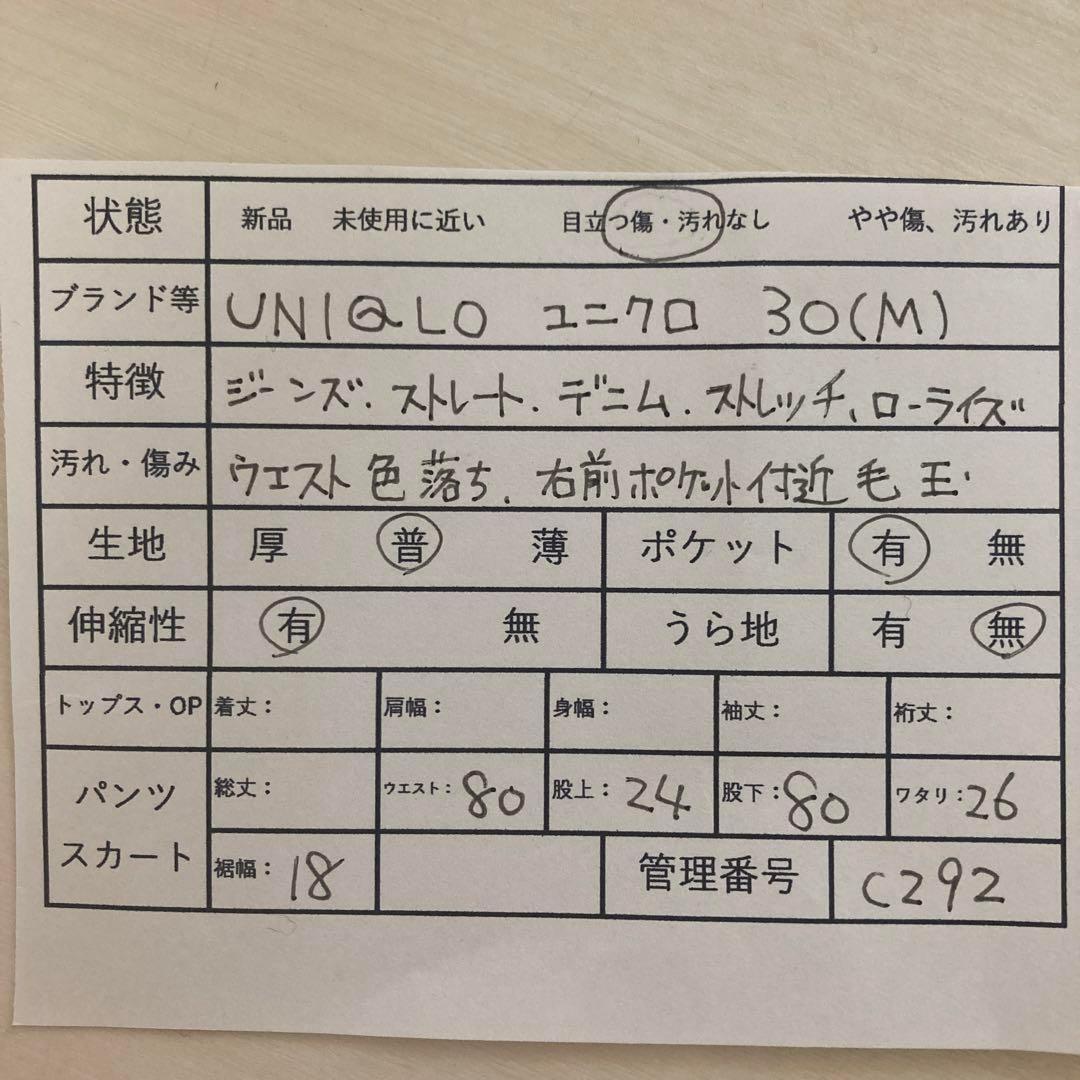 状態 新品 未使用に近い 目立つ傷・汚れなし やや傷、汚れあり
ブランド等 UNIQLO ユニクロ 30(M)
特徴 ジーンズ.ストレート.デニム.ストレッチ、ローライズ
汚れ・傷み ウエスト色落ち.右前ポケット付近毛玉.
生地 厚 普 薄 ポケット 有 無
伸縮性 有 無 うら地 有 無
トップス・OP 着丈: 肩幅: 身幅: 袖丈: 裄丈:
パンツ 総丈: ウエスト: 80 股上: 24 股下: 80 ワタリ: 26
スカート 裾幅: 18 管理番号 C292